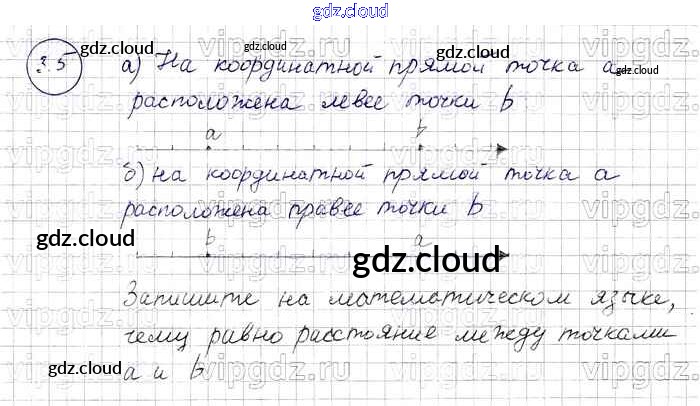 gdz.cloud
3.5
а) На координатной прямой точка а
расположена левее точки b
a b
б) на координатной прямой точка а
расположена правее точки b
b a
Запишите на математическом языке,
чему равно расстояние между точками
а и b
gdz.cloud
gdz.cloud
gdz.cloud
gdz.cloud
gdz.cloud
gdz.cloud
gdz.cloud
gdz.cloud
gdz.cloud
vipgdz